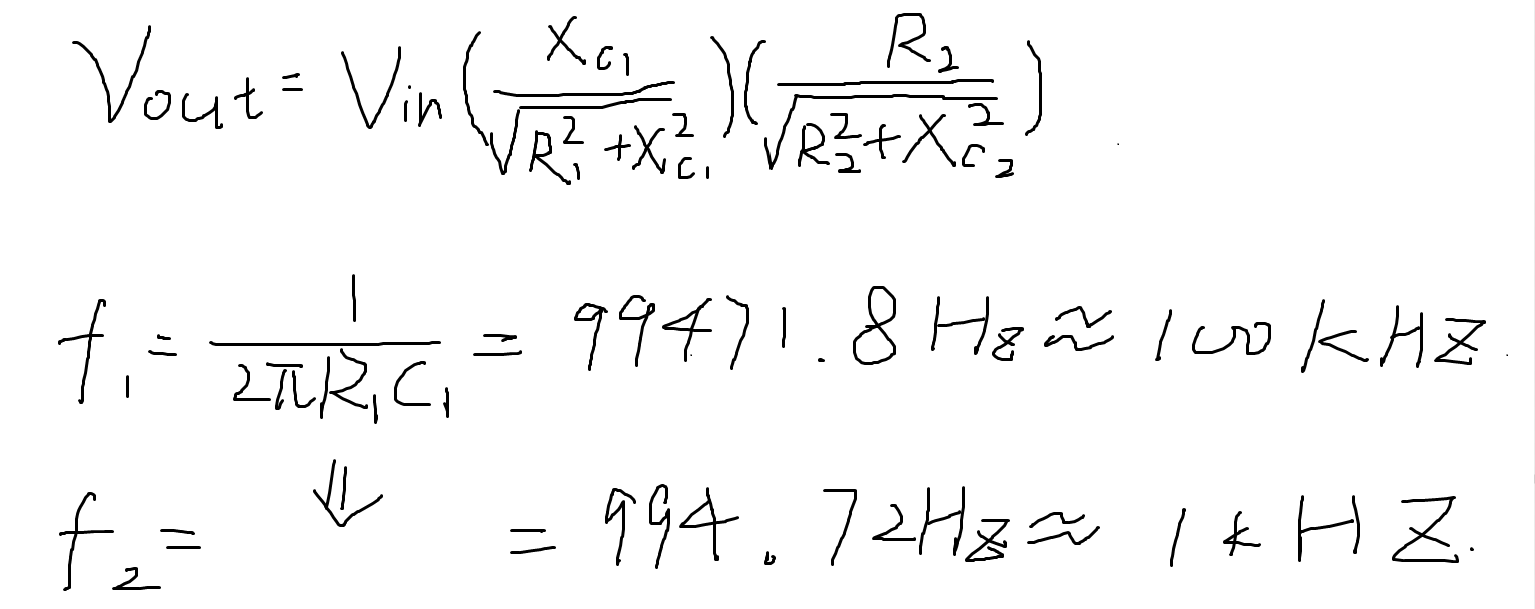 Vout = Vin (X_{C1} / √(R₁² + X_{C1}²)) (R₂ / √(R₂² + X_{C2}²))
f₁ = 1 / (2πR₁C₁) = 99471.8 Hz ≈ 100 kHz
f₂ = ⇓ = 994.72Hz ≈ 1 kHZ.